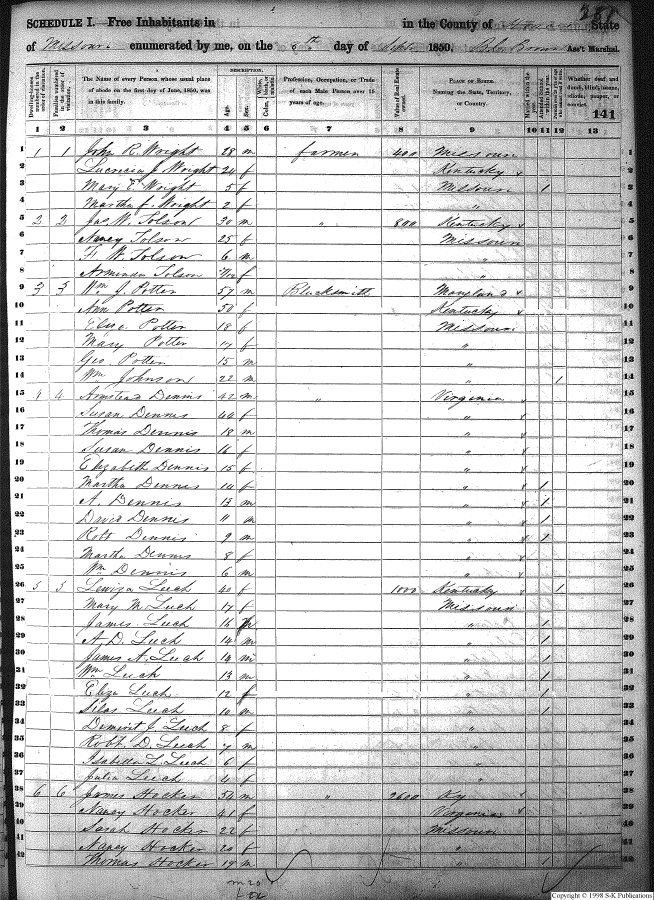 281
SCHEDULE I.—Free Inhabitants in in the County of State
of Missouri enumerated by me, on the 5th day of Sept 1850. Ass't Marshal.
Dwelling-houses numbered in the order of visitation.
Families numbered in the order of visitation.
The Name of every Person whose usual place of abode on the first day of June, 1850, was in this family.
DESCRIPTION.
Age.
Sex.
Color,
Profession, Occupation, or Trade of each Male Person over 15 years of age.
Value of Real Estate owned.
PLACE OF BIRTH. Naming the State, Territory, or Country.
Married within the year.
Attended School within the year.
Whether deaf and dumb, blind, insane, idiotic, pauper, or convict.
141
1 2 3 4 5 6 7 8 9 10 11 12 13
1 1 1 John R. Wright 28 m farmer 400 Missouri 1
2 Lucrecia J. Wright 24 f Kentucky 2
3 Mary E. Wright 5 f Missouri 1 3
4 Martha f. Wright 2 f " 4
5 2 2 Jas W. Tolson 30 m " 800 Kentucky 5
6 Nancy Tolson 25 f Missouri 6
7 W. Tolson 6 m " 7
8 Arminda Tolson f " 8
9 3 3 Wm J. Potter 57 m Blacksmith Maryland 9
10 Ann Potter 50 f Kentucky 10
11 Eliza Potter 18 f Missouri 11
12 Mary Potter 17 f " 12
13 Geo Potter 15 m " 13
14 Wm Johnson 22 m " 1 14
15 4 4 Armstead Dennis 42 m " Virginia 15
16 Susan Dennis 44 f " 16
17 Thomas Dennis 18 m " 17
18 Susan Dennis 16 f " 18
19 Elizabeth Dennis 15 f " 19
20 Martha Dennis 14 f " 1 20
21 A. Dennis 13 m " 1 21
22 David Dennis 11 m " 1 22
23 Robt Dennis 9 m " 1 23
24 Martha Dennis 8 f " 24
25 Wm Dennis 6 m " 25
26 5 5 Lewiza Leech 40 f 1000 Kentucky 1 26
27 Mary M. Leech 17 f Missouri 27
28 James Leech 16 m " 1 28
29 A. D. Leech 14 m " 1 29
30 James A. Leech 14 m " 1 30
31 Wm Leech 13 m " 1 31
32 Eliza Leech 12 f " 1 32
33 Silas Leech 10 m " 1 33
34 J. Leech 8 f " 34
35 Robt D. Leech 7 m " 35
36 Isabella L. Leech 6 f " 36
37 Julia Leech 4 f " 37
38 6 6 James Hocker 54 m " 2600 Ky 38
39 Nancy Hocker 41 f Virginia 39
40 Sarah Hocker 22 f Missouri 40
41 Nancy Hocker 20 f " 41
42 Thomas Hocker 19 m " 1 42
m 20
Copyright © 1998 S-K Publications